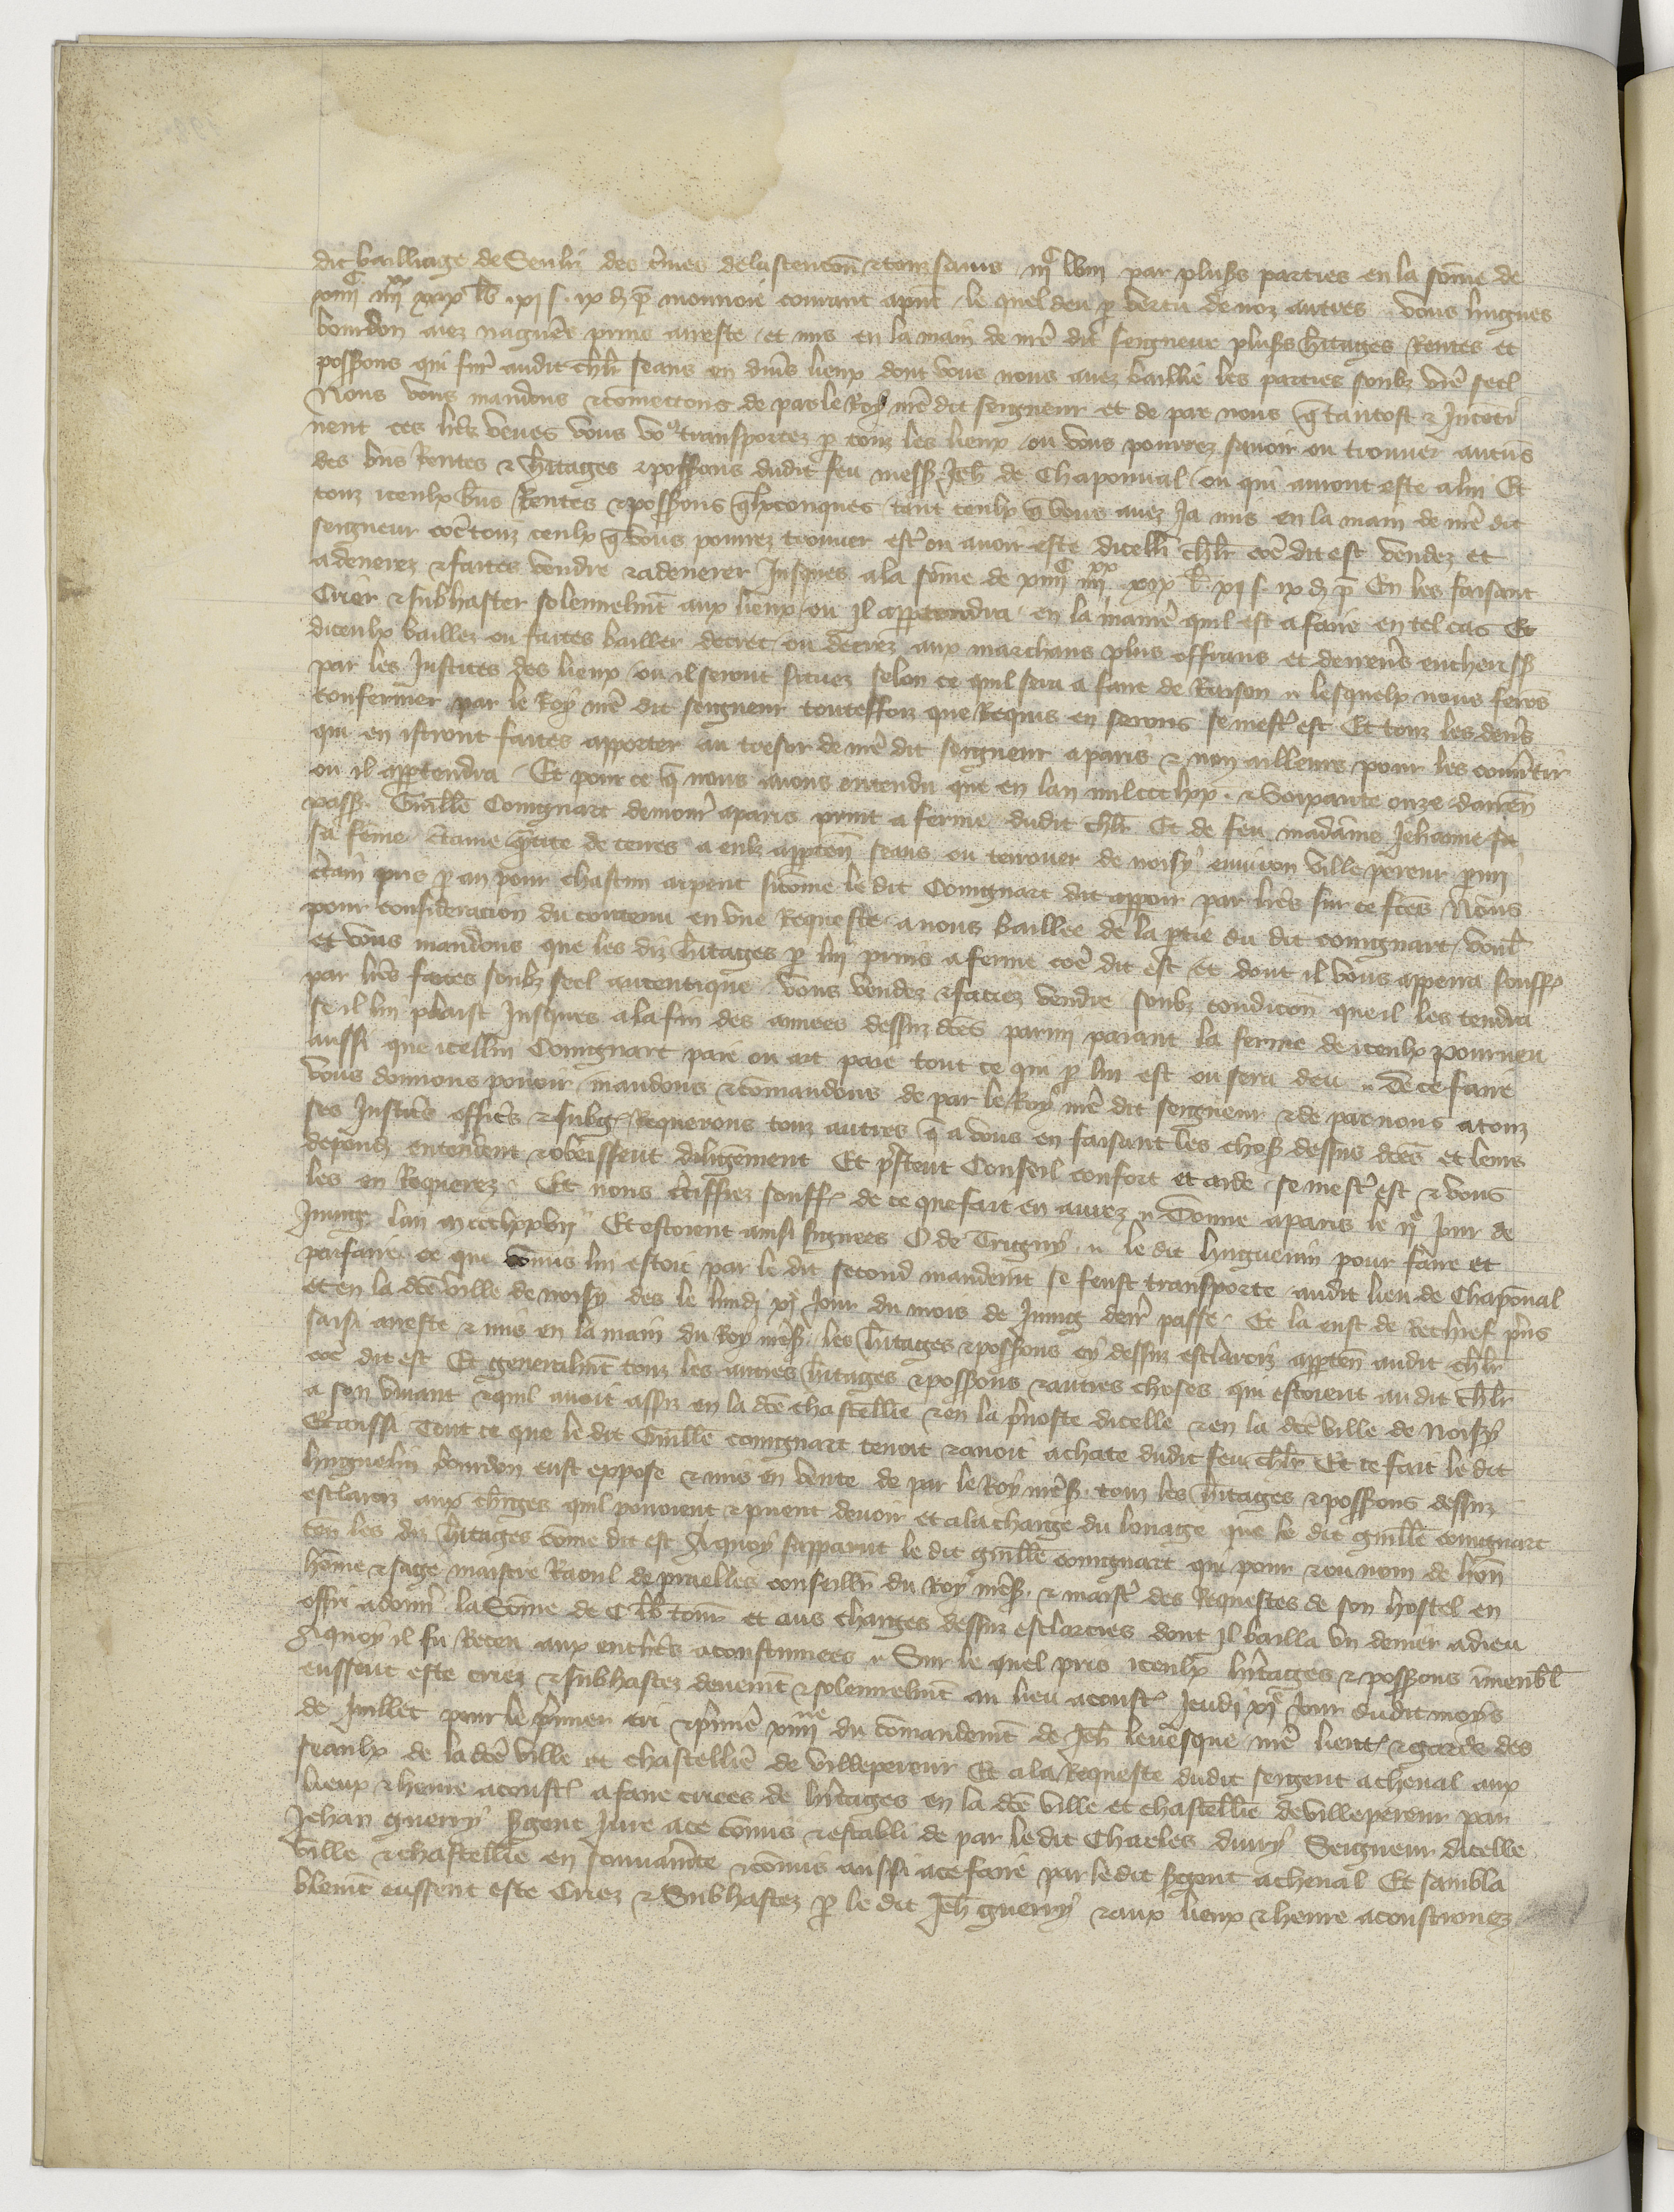 dit bailliage de Senliz des t̾mes delascencon̄ ⁊ touzsains mccc lviii par plus̾s parties en la som̄e de
xiiiic iiiixx xix lb. xi s. ix d. p̄ monnoie courant ap̾nt le quel deu p̱ vertu de noz autres vous hugues
bourdon avez nagueres prins arreste et mis en la main de n̄re dit seigneur plus̾s h̾itages Rentes et
poss̾ons qui furent audit ch̄lr seans en div̾s lieux dont vous nous avez baillie les parties soubz v̄re seel
Nous vous mandons ⁊ cometons de par le Roy n̄re dit seigneur et de par nous q̄ tantost ⁊ Incoti
nent ces l̄res veues vous vous transportez p̱ touz les lieux ou vous pourrez savoir ou trouver aucūs
des bn̄s Rentes ⁊ h̾itages ⁊ poss̾ons dudit feu mess̾ Jeh̄ de Chaponval ou qui avront este a lui Et
touz iceulx bn̄s Rentes ⁊ poss̾ons q̄lxconques tant ceulx q̄ vous avez Ja mis en la main de n̄re dit
seigneur com̄e touz ceulx q̄ vous pourrez trouver est̾ ou avoir este dicelli ch̄lr com̄e dit est vendez et
adenerez ⁊ faites vendre ⁊ adenerer Jusques a la som̄e de xiiiic iiiixx xix l. xi s. ix d. p̄ En les faisant
Crier ⁊ subhaster solennelm̄t aux lieux ou Il appartendra en la maniere quil est a faire en tel cas Et
diceulx bailler ou faites bailler decret ou decrez aux marchans plus offrans et derreniers encheriss̾
par les Justices des lieux ou il seront situez selon ce quil sera a faire de Raison lesquelx nous ferōs
confermer par le Roy n̄re dit seigneur touteffoiz que Requis en serons se mest̾ est Et touz les den̾s
qui en istront faites apporter au tresor de n̄re dit seigneur a paris ⁊ non ailleurs pour les conv̾tir
ou il app̱tendra Et pour ce q̄ nous avons entendu que en lan mil ccclxx ⁊ Soixante onze darren̄
pass̾ Guill̄e Coingnart demour̄ a paris print a ferme dudit ch̄lr Et de feu madame Jehanne
sa feme c̾taine q̄ntite de terres a eulx app̱ten̄ seans ou terrouer de noisy environ villepereur p̱mi
c̾tain pris p̱ an pour chascun arpent sicom̄e le dit Coingnart dit apparoir par l̄res sur ce fc̄es Nous
pour consideracion du contenu en une Requeste a nous baillee de la p̱tie du dit coingnart voul̄
et vous mandons que les diz h̾itages p̱ lui prins a ferme com̄e dit est et dont il vous apperra souff̾
par l̄res faites soubz seel autentique vous vendez ⁊ faciez vendre soubz condicon̄ que il les tendra
se il lui plaist Jusques a la fin des annees dessuz dc̄es parmi paiant la ferme de iceulx pourveu
aussi que icellui Coingnart paie ou ait paie tout ce qui p̱ lui est ou sera deu De ce faire
vous donnons povoir mandons ⁊ com̄andons de par le Roy n̄re dit seigneur ⁊ de par nous a touz
ses Justic̾s offic̾s ⁊ subg̾ Requerons touz autres q̄ a vous en faisant les chos̾ dessus dc̄es et leurs
depend̾ entendent ⁊ obeissent diligēment Et p̾stent Conseil confort et aide se mest̾ est ⁊ vous
les en Requerez Et nous c̾tiffiez souff̾ de ce que fait en avrez Donne a paris le iie Jour de
Juing lan mccclxxvii Et estoient ainsi signees O de Trigny le dit huguenin pour faire et
parfaire ce que com̄is lui estoit par le dit second mandem̄t se feust transporte audit lieu de Chaponval
et en la dc̄e ville de noisy des le lundi xve Jour du mois de Juing derr̾ passe Et la eust de Rechief p̾ns
saisi arreste ⁊ mis en la main du Roy n̄res̾ les h̾itages ⁊ poss̾ons cy dessuz esclarciz app̱ten̄ audit ch̄lr
com̄e dit est Et generalm̄t touz les autres h̾itages ⁊ poss̾ons ⁊ autres choses qui estoient audit ch̄lr
a son vivant ⁊ quil avoit assiz en la dc̄e chastell̄ie ⁊ en la p̾voste dicelle ⁊ en la dc̄e ville de Noisy
Et aussi Tout ce que le dit Guill̄e coingnart tenoit ⁊ avoit achate dudit feu ch̄lr Et ce fait le dit
huguelin bourdon eust expose ⁊ mis en vente de par le Roy n̄res̾ touz les h̾itages ⁊ poss̾ons dessuz
esclarciz aux ch̾ges quil povoient ⁊ puent devoir et a la charge du louage que le dit guill̄e coingnart
ten̄ les diz h̾itages com̄e dit est A quoy sapparut le dit guill̄e coingnart qui pour ⁊ ou nom de hon̄
hōme ⁊ sage maistre Raoul de praelles conseill̄r du Roy n̄res̾ ⁊ maist̾ des Requestes de son hostel en
offri a don̄ la Som̄e de C lb tour̾ et aus charges dessuz esclarcies dont Il bailla un denier a dieu
A quoy il fu Receu aux encheres acoustumees Sur le quel pris iceulx h̾itages ⁊ poss̾ons im̄eubl̄
eussent este criez ⁊ subhastez deuem̄t ⁊ solennelm̄t au lieu acoust̾ Jeudi xie Jour dudit moys
de Juillet pour le premier cri ⁊ p̾miere xiiiine du com̄andem̄t de Jeh̄ levesque n̄re lieut̾ ⁊ garde des
seaulx de la dc̄e ville et chastell̄ie de villepereur Et a la Requeste dudit sergent a cheval aux
lieux ⁊ heure acoust̾ a faire criees de h̾itages en la dc̄e ville et chastell̄ie de villepereur par
Jehan guerry s̾gent Jure a ce com̄is ⁊ establi de par le dit Charles divry Seigneur dicelle
ville ⁊ chastell̄ie en ⁊ com̄is aussi a ce faire par le dit s̾gent a cheval Et sambla
blem̄t eussent este Criez ⁊ Subhastez p̱ le dit Jeh̄ guerry ⁊ aux lieux ⁊ heure acoustumez